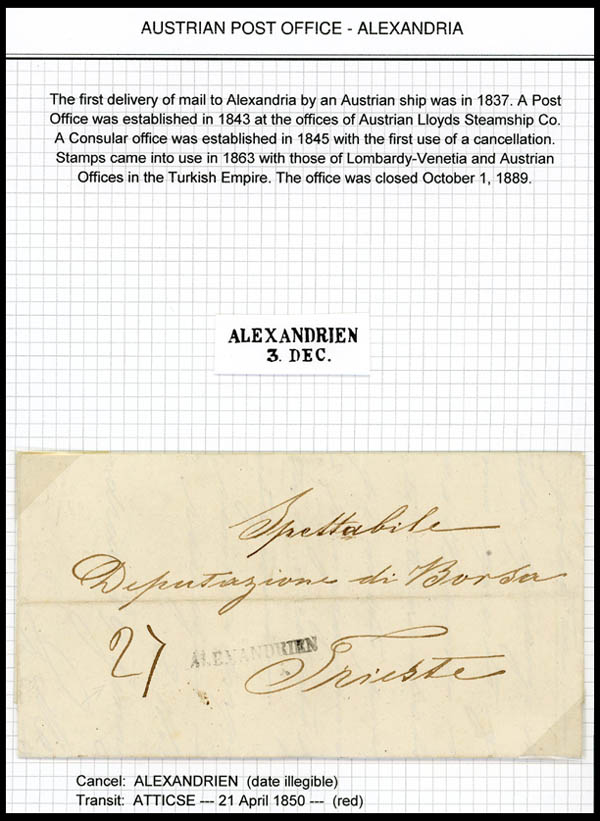 AUSTRIAN POST OFFICE - ALEXANDRIA
The first delivery of mail to Alexandria by an Austrian ship was in 1837. A Post
Office was established in 1843 at the offices of Austrian Lloyds Steamship Co.
A Consular office was established in 1845 with the first use of a cancellation.
Stamps came into use in 1863 with those of Lombardy-Venetia and Austrian
Offices in the Turkish Empire. The office was closed October 1, 1889.
ALEXANDRIEN
3. DEC.
Spettabile
Deputazione di Borsa
27
ALEXANDRIEN
Trieste
Cancel: ALEXANDRIEN (date illegible)
Transit: ATTICSE --- 21 April 1850 --- (red)